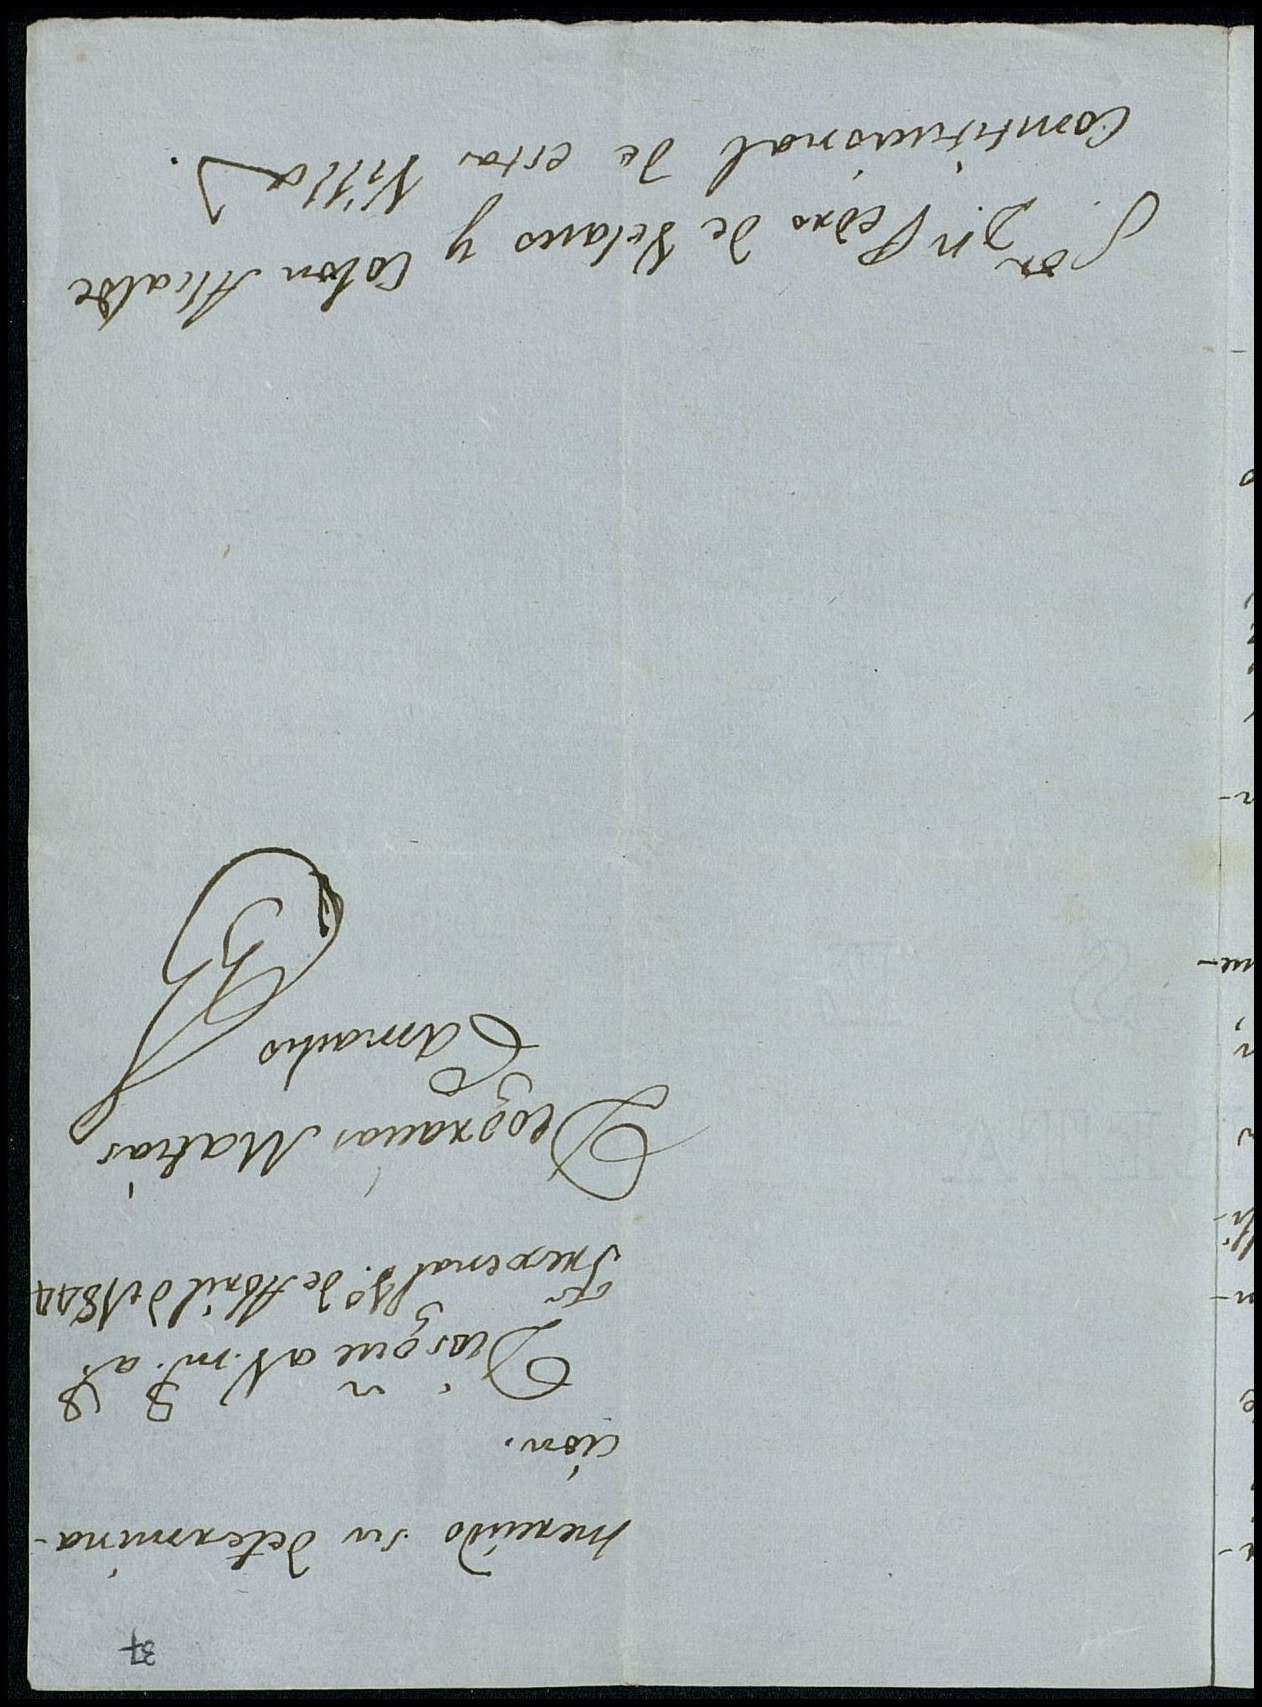 37
merecido su determina-
ción.
Dios gue a V. m.s a.s
Frexenal 1º. de Abril de 1844
Deogracias Matias
Camacho
S.or D.n Pedro de Velasco y Colon Alcalde
Constitucional de esta Villa.